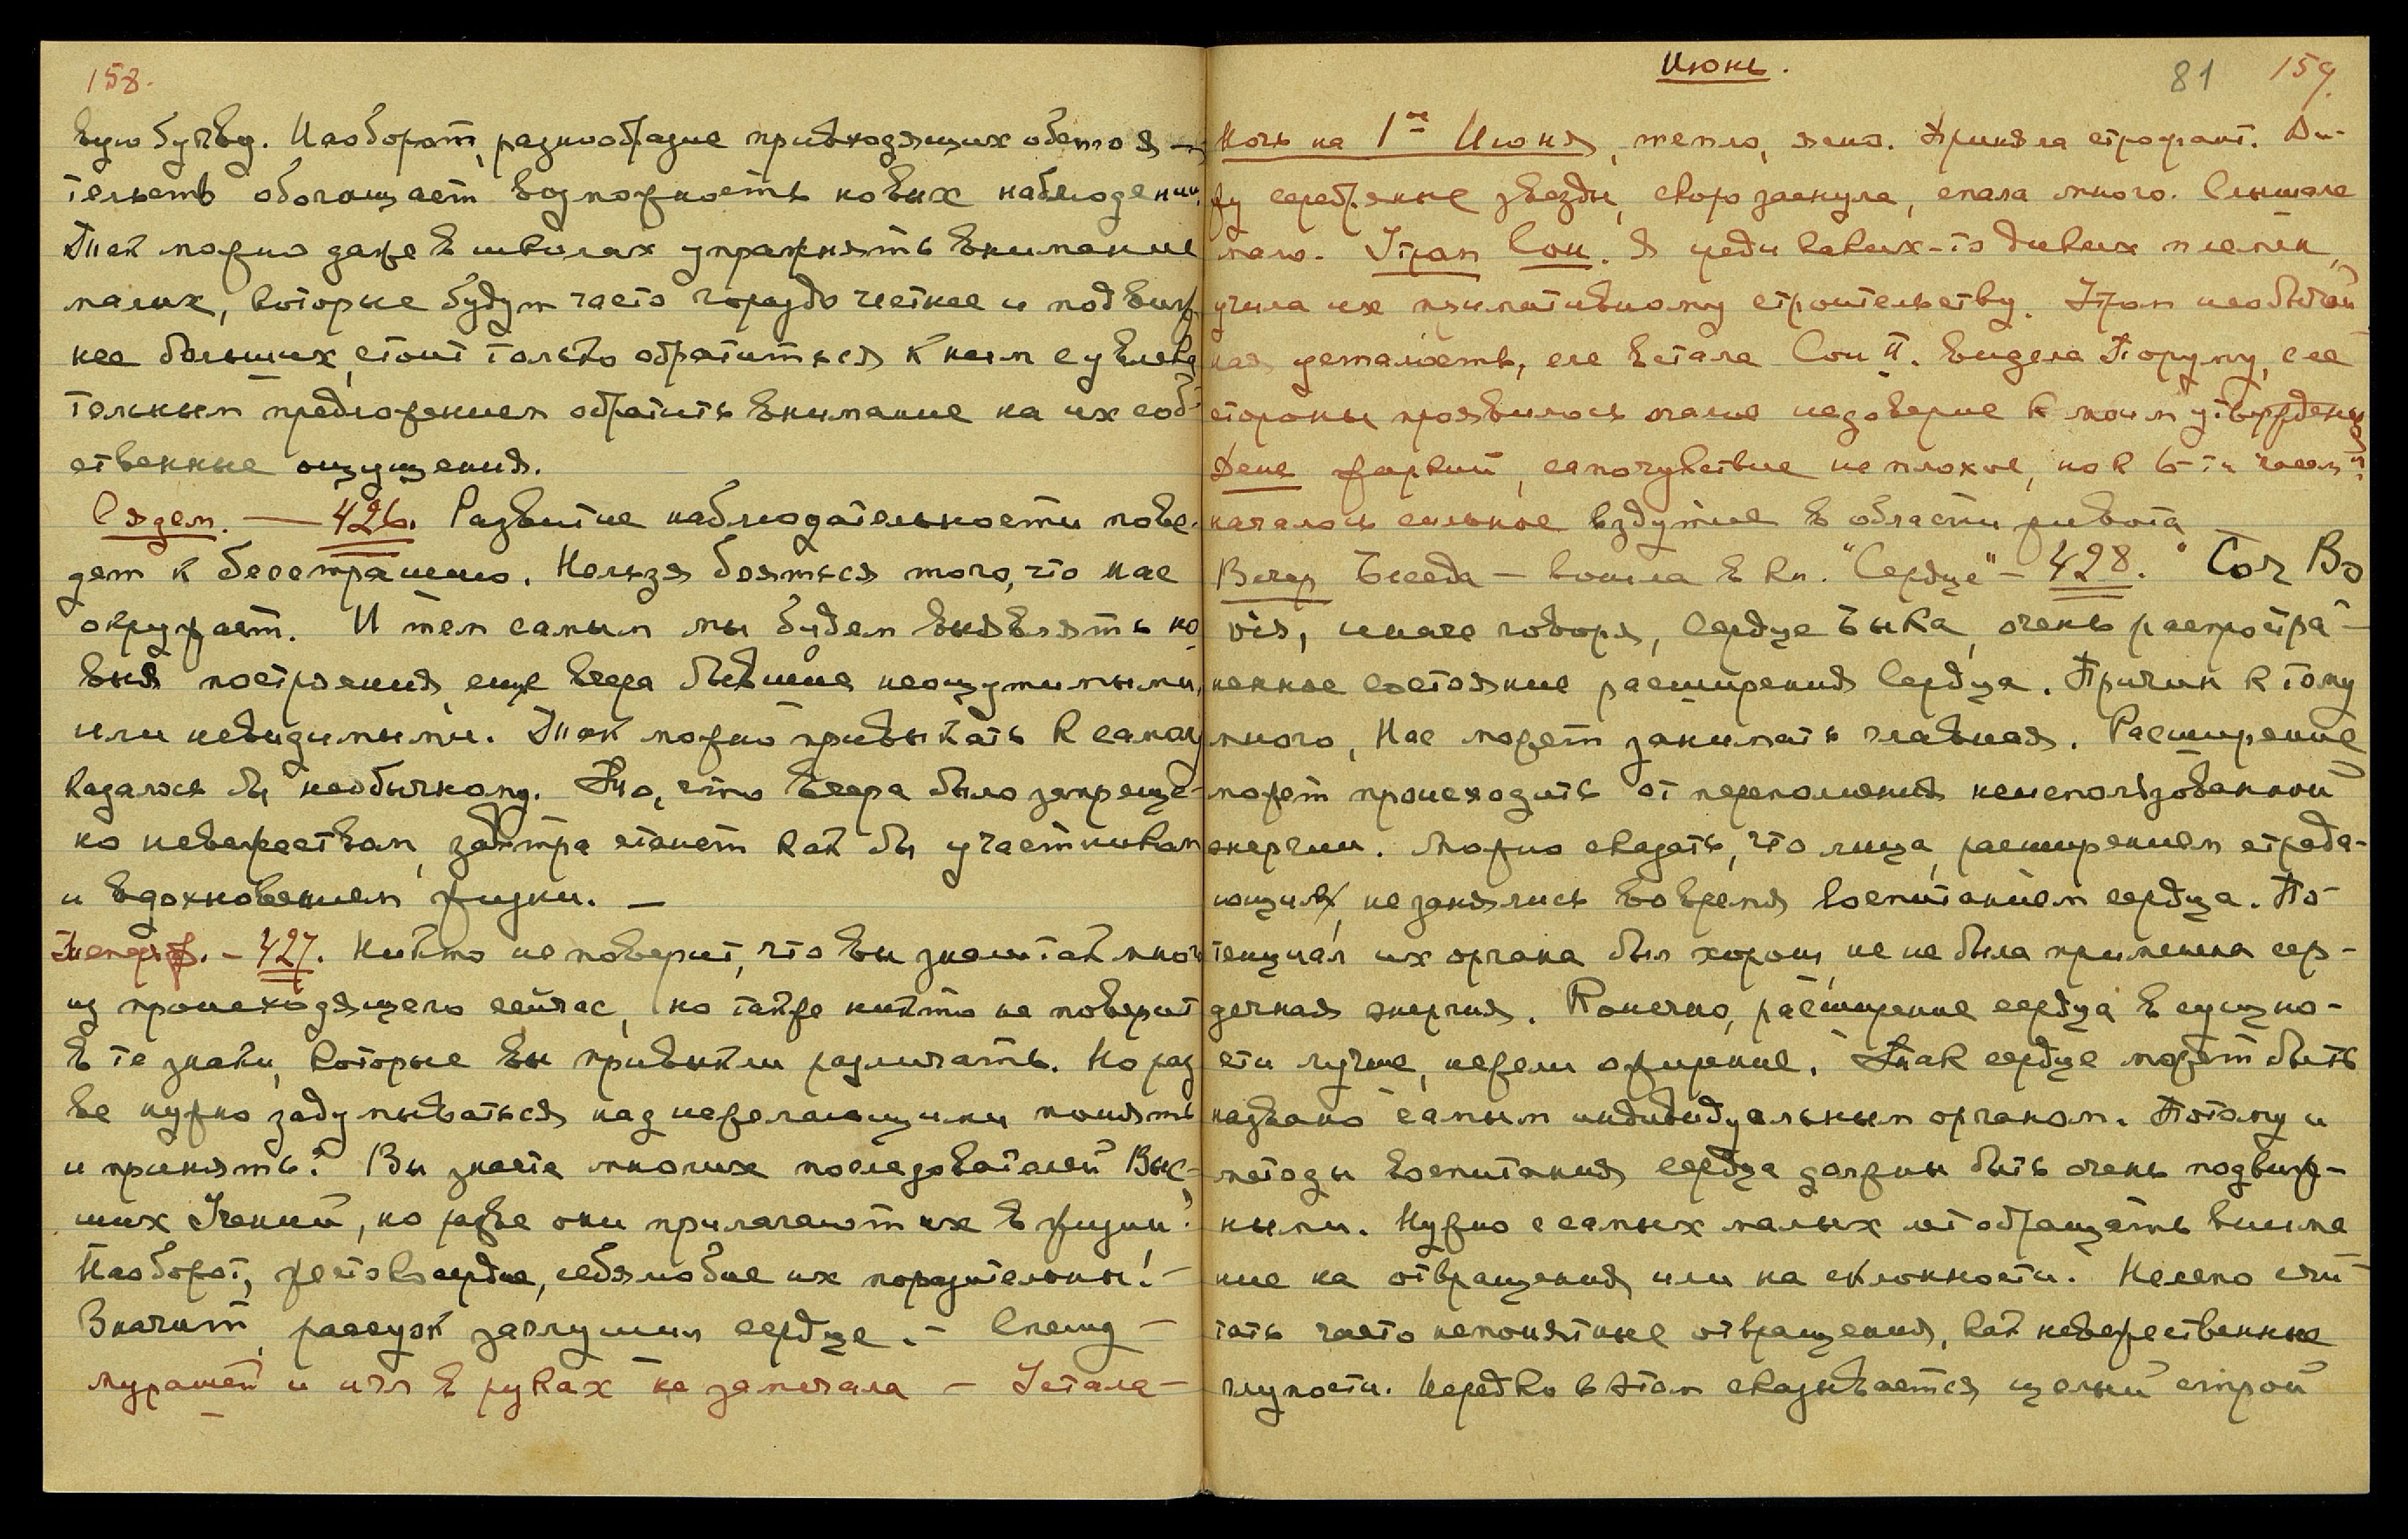 158.
вую букву. Наоборот, разнообразие привходящих обстоя-
тельств обогащает возможность новых наблюдений.
Так можно даже в школах упражнять внимание
малых, которые будут часто гораздо честнее и подвиж
нее больших, стоит только обратиться к ним с увлека
тельным предложением обратить внимание на их соб-
ственные ощущения.
Сядем. — 426. Развитие наблюдательности пове-
дет к бесстрашию. Нельзя бояться того, что нас
окружает. И тем самым мы будем выявлять но
выя построения, еще вчера бывшие неощутимыми,
или невидимыми. Так можно привыкать к самому
казалось бы необычному. То, что вчера было запреще-
но невежеством, завтра станет как бы участником
и вдохновением жизни. —
427. Никто не поверит, что вы знаете так много
из происходящего сейчас, но также никто не поверит
в те знаки, которые вы привыкли различать. Но раз
ве нужно задумываться над нежелающими понять
и принять? Вы знаете многих последователей Выс-
ших Учений, но разве они прилагают их в жизни?
Наоборот, жестокосердие, себялюбие их поразительны! —
Значит, рассудок заглушил сердце. — Спешу —
Мурашей и игл в руках не замечала — Устала —
Июнь.
81 159.
Ночь на 1ое Июня, тепло, ясно. Приняла строфант. Ви-
жу серебряные звезды, скоро заснула, спала много. Слышала
мало. Утром Сон. Я среди каких-то диких племен,
учила их примитивному строительству. Утром необычай
ная усталость, еле встала Сон II. Видела Поруму, с ее
стороны проявилось очание недоверие к моим утверждениям
День жаркий, самочувствие неплохое, но к 6-ти часам
началось сильное вздутие в области живота
Вечер Беседа — вошла в кн. "Сердце" — 428. "Cor Bo
vis, иначе говоря, Сердце Быка, очень распростра-
ненное состояние расширения Сердца. Причин к тому
много, Нас может занимать главная. Расширение
может происходить от переполнения неиспользованной
энергии. Можно сказать, что лица, расширением страда-
ющих, не занялись вовремя воспитанием сердца. По-
тенциал их органа был хорош, не не была применена сер-
дечная энергия. Конечно, расширение сердца в сущно-
сти лучше, нежели ожирение. Так сердце может быть
названо самым индивидуальным органом. Потому и
методы воспитания сердца должны быть очень подвиж-
ными. Нужно с самых малых лет обращать внима
ние на отвращения или на склонности. Нелепо счи-
тать часто непонятные отвращения, как невежественные
глупости. Нередко в этом сказывается целый строй